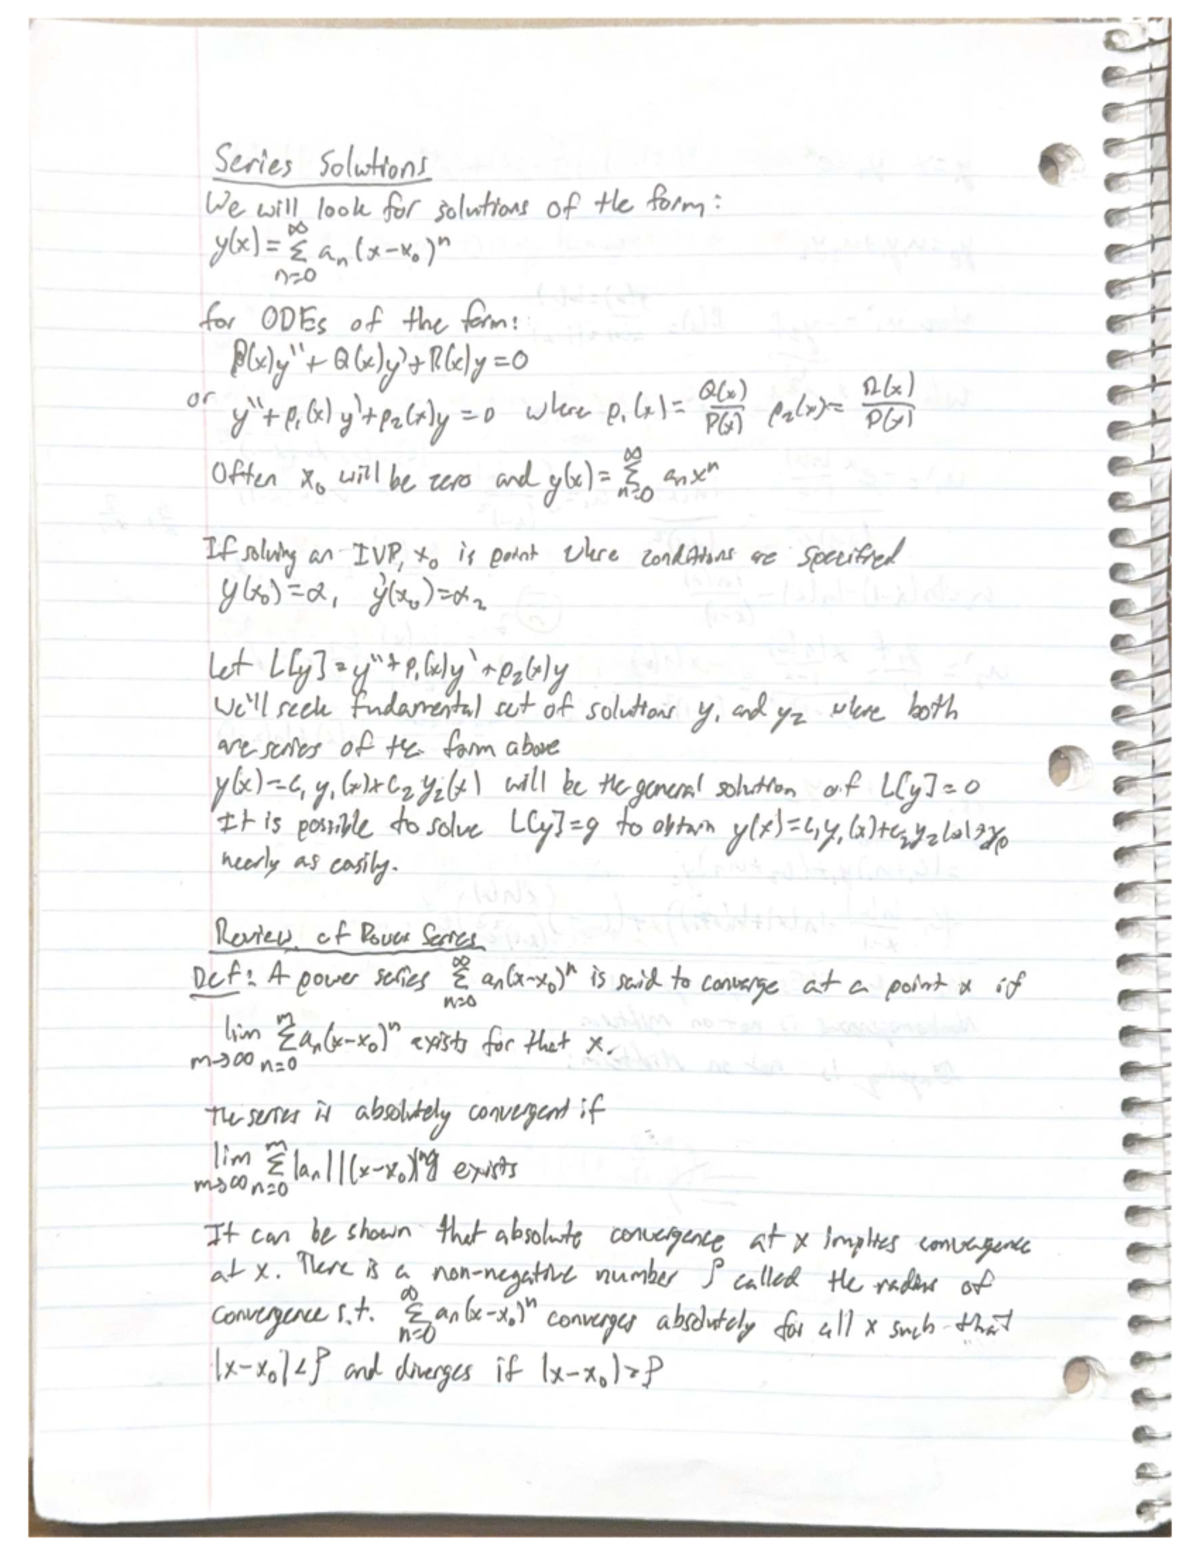 Series Solutions
We will look for solutions of the form:
y(x) = ∞Σn=0 aₙ (x-x₀)ⁿ
for ODEs of the form:
P(x)y'' + Q(x)y' + R(x)y = 0
or y'' + p₁(x) y' + p₂(x)y = 0 where p₁(x) = Q(x)/P(x) p₂(x) = R(x)/P(x)
Often x₀ will be zero and y(x) = ∞Σn=0 aₙxⁿ
If solving an IVP, x₀ is point where conditions are specified
y(x₀) = α₁ y'(x₀) = α₂
Let L[y] = y'' + p₁(x)y' + p₂(x)y
We'll seek fundamental set of solutions y₁ and y₂ where both
are series of the form above
y(x) = c₁ y₁(x) + c₂ y₂(x) will be the general solution of L[y] = 0
It is possible to solve L[y] = g to obtain y(x) = c₁y₁(x) + c₂y₂(x) + yp
nearly as easily.
Review of Power Series
Def: A power series ∞Σn=0 aₙ(x-x₀)ⁿ is said to converge at a point x if
lim m→∞ mΣn=0 aₙ(x-x₀)ⁿ exists for that x.
The series is absolutely convergent if
lim m→∞ mΣn=0 |aₙ||(x-x₀)ⁿ| exists
It can be shown that absolute convergence at x implies convergence
at x. There is a non-negative number ρ called the radius of
convergence s.t. ∞Σn=0 aₙ(x-x₀)ⁿ converges absolutely for all x such that
|x-x₀| < ρ and diverges if |x-x₀| > ρ